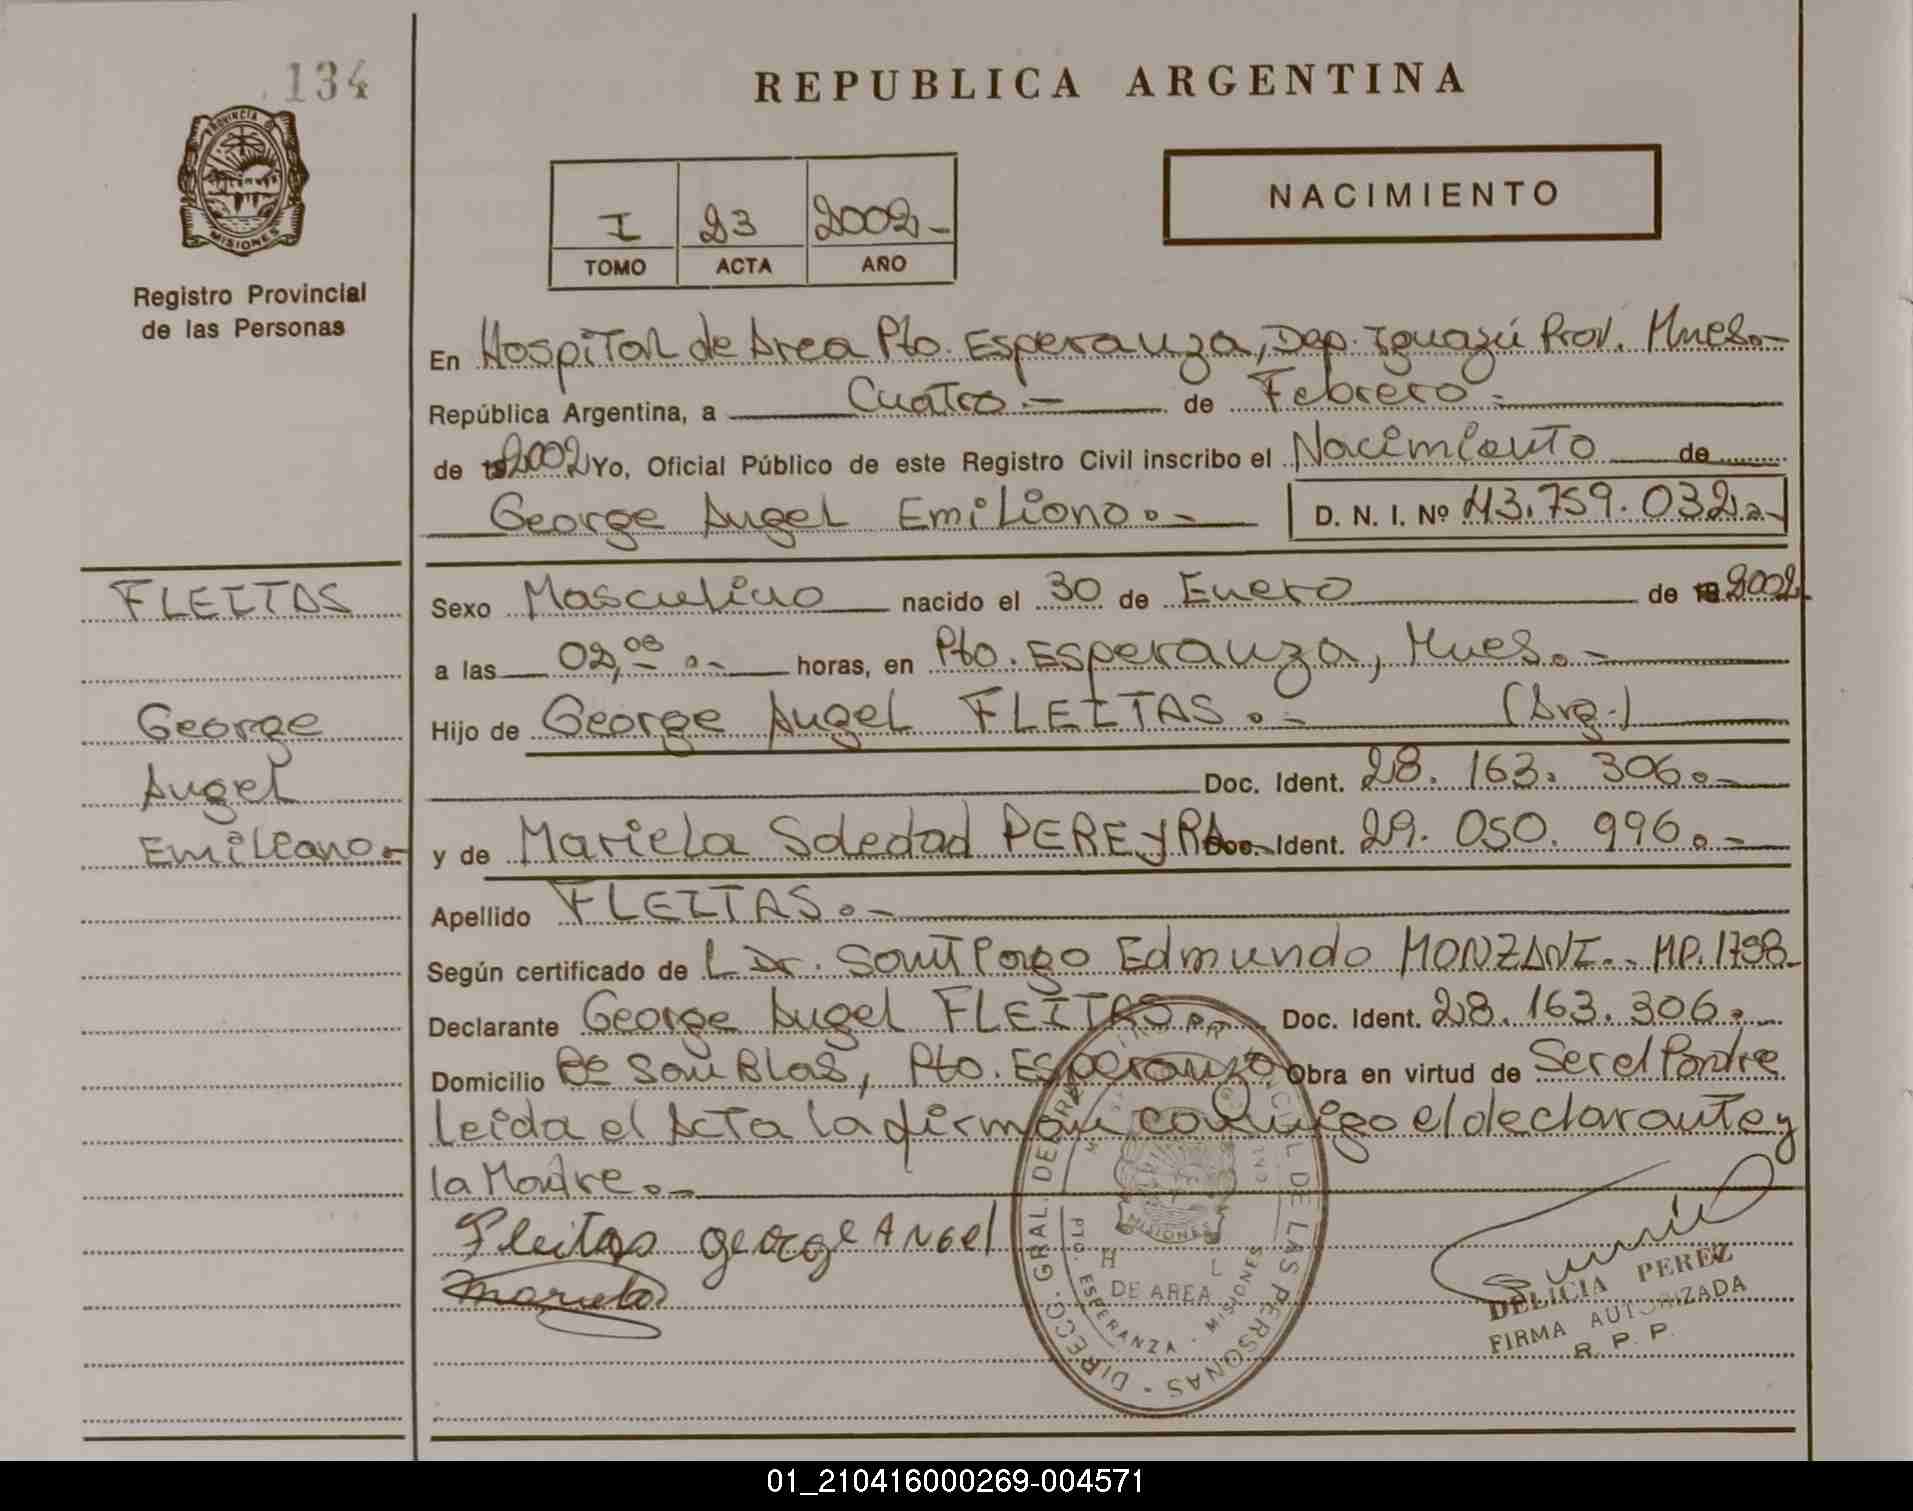 134
REPUBLICA ARGENTINA
PROVINCIA DE
MISIONES
Registro Provincial
de las Personas
I 23 2002.-
TOMO ACTA AÑO
NACIMIENTO
En Hospital de Area Pto. Esperanza, Dep. Iguazú Prov. Mnes.-
República Argentina, a Cuatro.- de Febrero.-
de 2002 Yo, Oficial Público de este Registro Civil inscribo el Nacimiento de
George Angel Emiliano.- D. N. I. Nº 43.759.032.-
FLEITAS
George
Angel
Emiliano.-
Sexo Masculino nacido el 30 de Enero de 2002
a las 02,00.- horas, en Pto. Esperanza, Mnes.-
Hijo de George Angel FLEITAS.- (Arg.)
Doc. Ident. 28.163.306.-
y de Mariela Soledad PEREYRA.- Doc. Ident. 29.050.996.-
Apellido FLEITAS.-
Según certificado de Dr. Santiago Edmundo MONZANI.- MP.1798-
Declarante George Angel FLEITAS.- Doc. Ident. 28.163.306.-
Domicilio Bº San Blas, Pto. Esperanza Obra en virtud de Ser el Padre
Leida el Acta la firman conmigo el declarante y
la Madre.-
Fleitas george Angel
Mariela
DIRECC. GRAL. DEL REG. PROVINCIAL DE LAS PERSONAS
MISIONES
H L
DE AREA
PTO. ESPERANZA - MISIONES
DELICIA PEREZ
FIRMA AUTORIZADA
R. P. P.
01_210416000269-004571